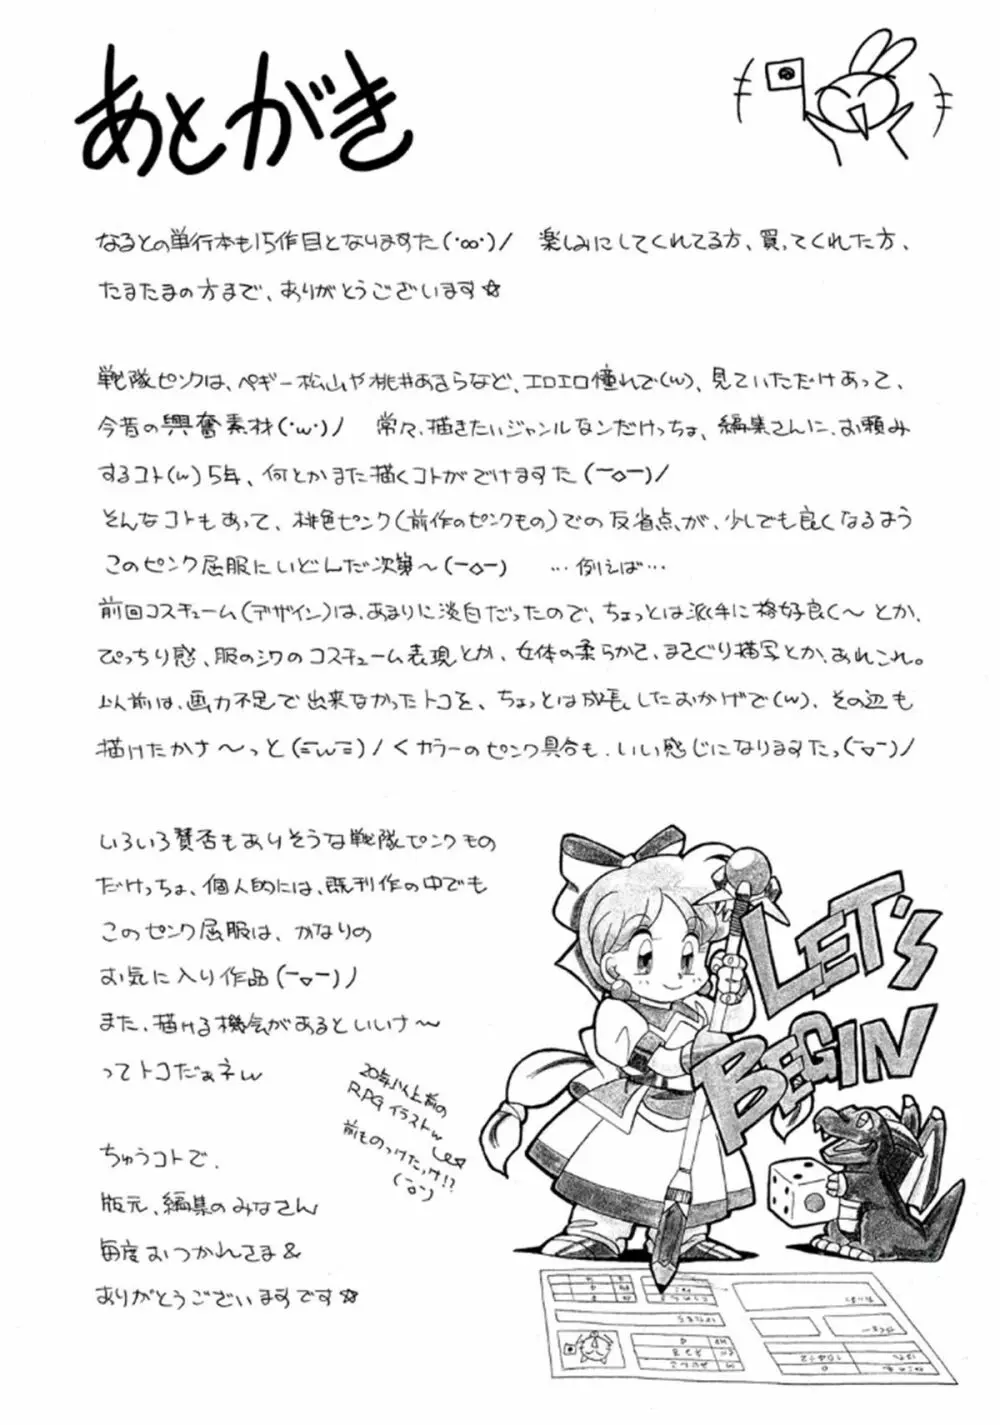 あとがき
なるとの単行本も15作目となりますた(・∞・)ノ 楽しみにしてくれてる方、買ってくれた方、
たまたまの方まで、ありがとうございます☆
戦隊ピンクは、ペギー松山や桃井あきらなど、エロエロ憧れで(w)、見ていただけあって、
今昔の興奮素材(・w・)ノ 常々、描きたいジャンルなンだけっちょ、編集さんに、お頼み
するコト(w)5年、何とかまた描くコトがでけますた(￣◇￣)ノ
そんなコトもあって、桃色ピンク(前作のピンクもの)での反省点が、少しでも良くなるよう
このピンク屈服にいどんだ次第〜(￣◇￣) …例えば…
前回コスチューム(デザイン)は、あまりに淡白だったので、ちょっとは派手に格好良く〜とか、
ぴっちり感、服のシワのコスチューム表現とか、女体の柔らかさ、まさぐり描写とか、あれこれ。
以前は、画力不足で出来なかったトコを、ちょっとは成長したおかげで(w)、その辺も
描けたかナ〜っと(≡w≡)ノくカラーのピンク具合も、いい感じになりますたっ(￣▽￣)ノ
いろいろ賛否もありそうな戦隊ピンクもの
だけっちょ、個人的には、既刊作の中でも
このピンク屈服は、かなりの
お気に入り作品(￣▽￣)ノ
また、描ける機会があるといいナ〜
ってトコだぁネw
20年以上前の
RPGイラストw
前ものっけたっけ!?
(￣o￣)
ちゅうコトで、
版元、編集のみなさん
毎度おつかれさま&
ありがとうございますです☆
LET's
BEGIN